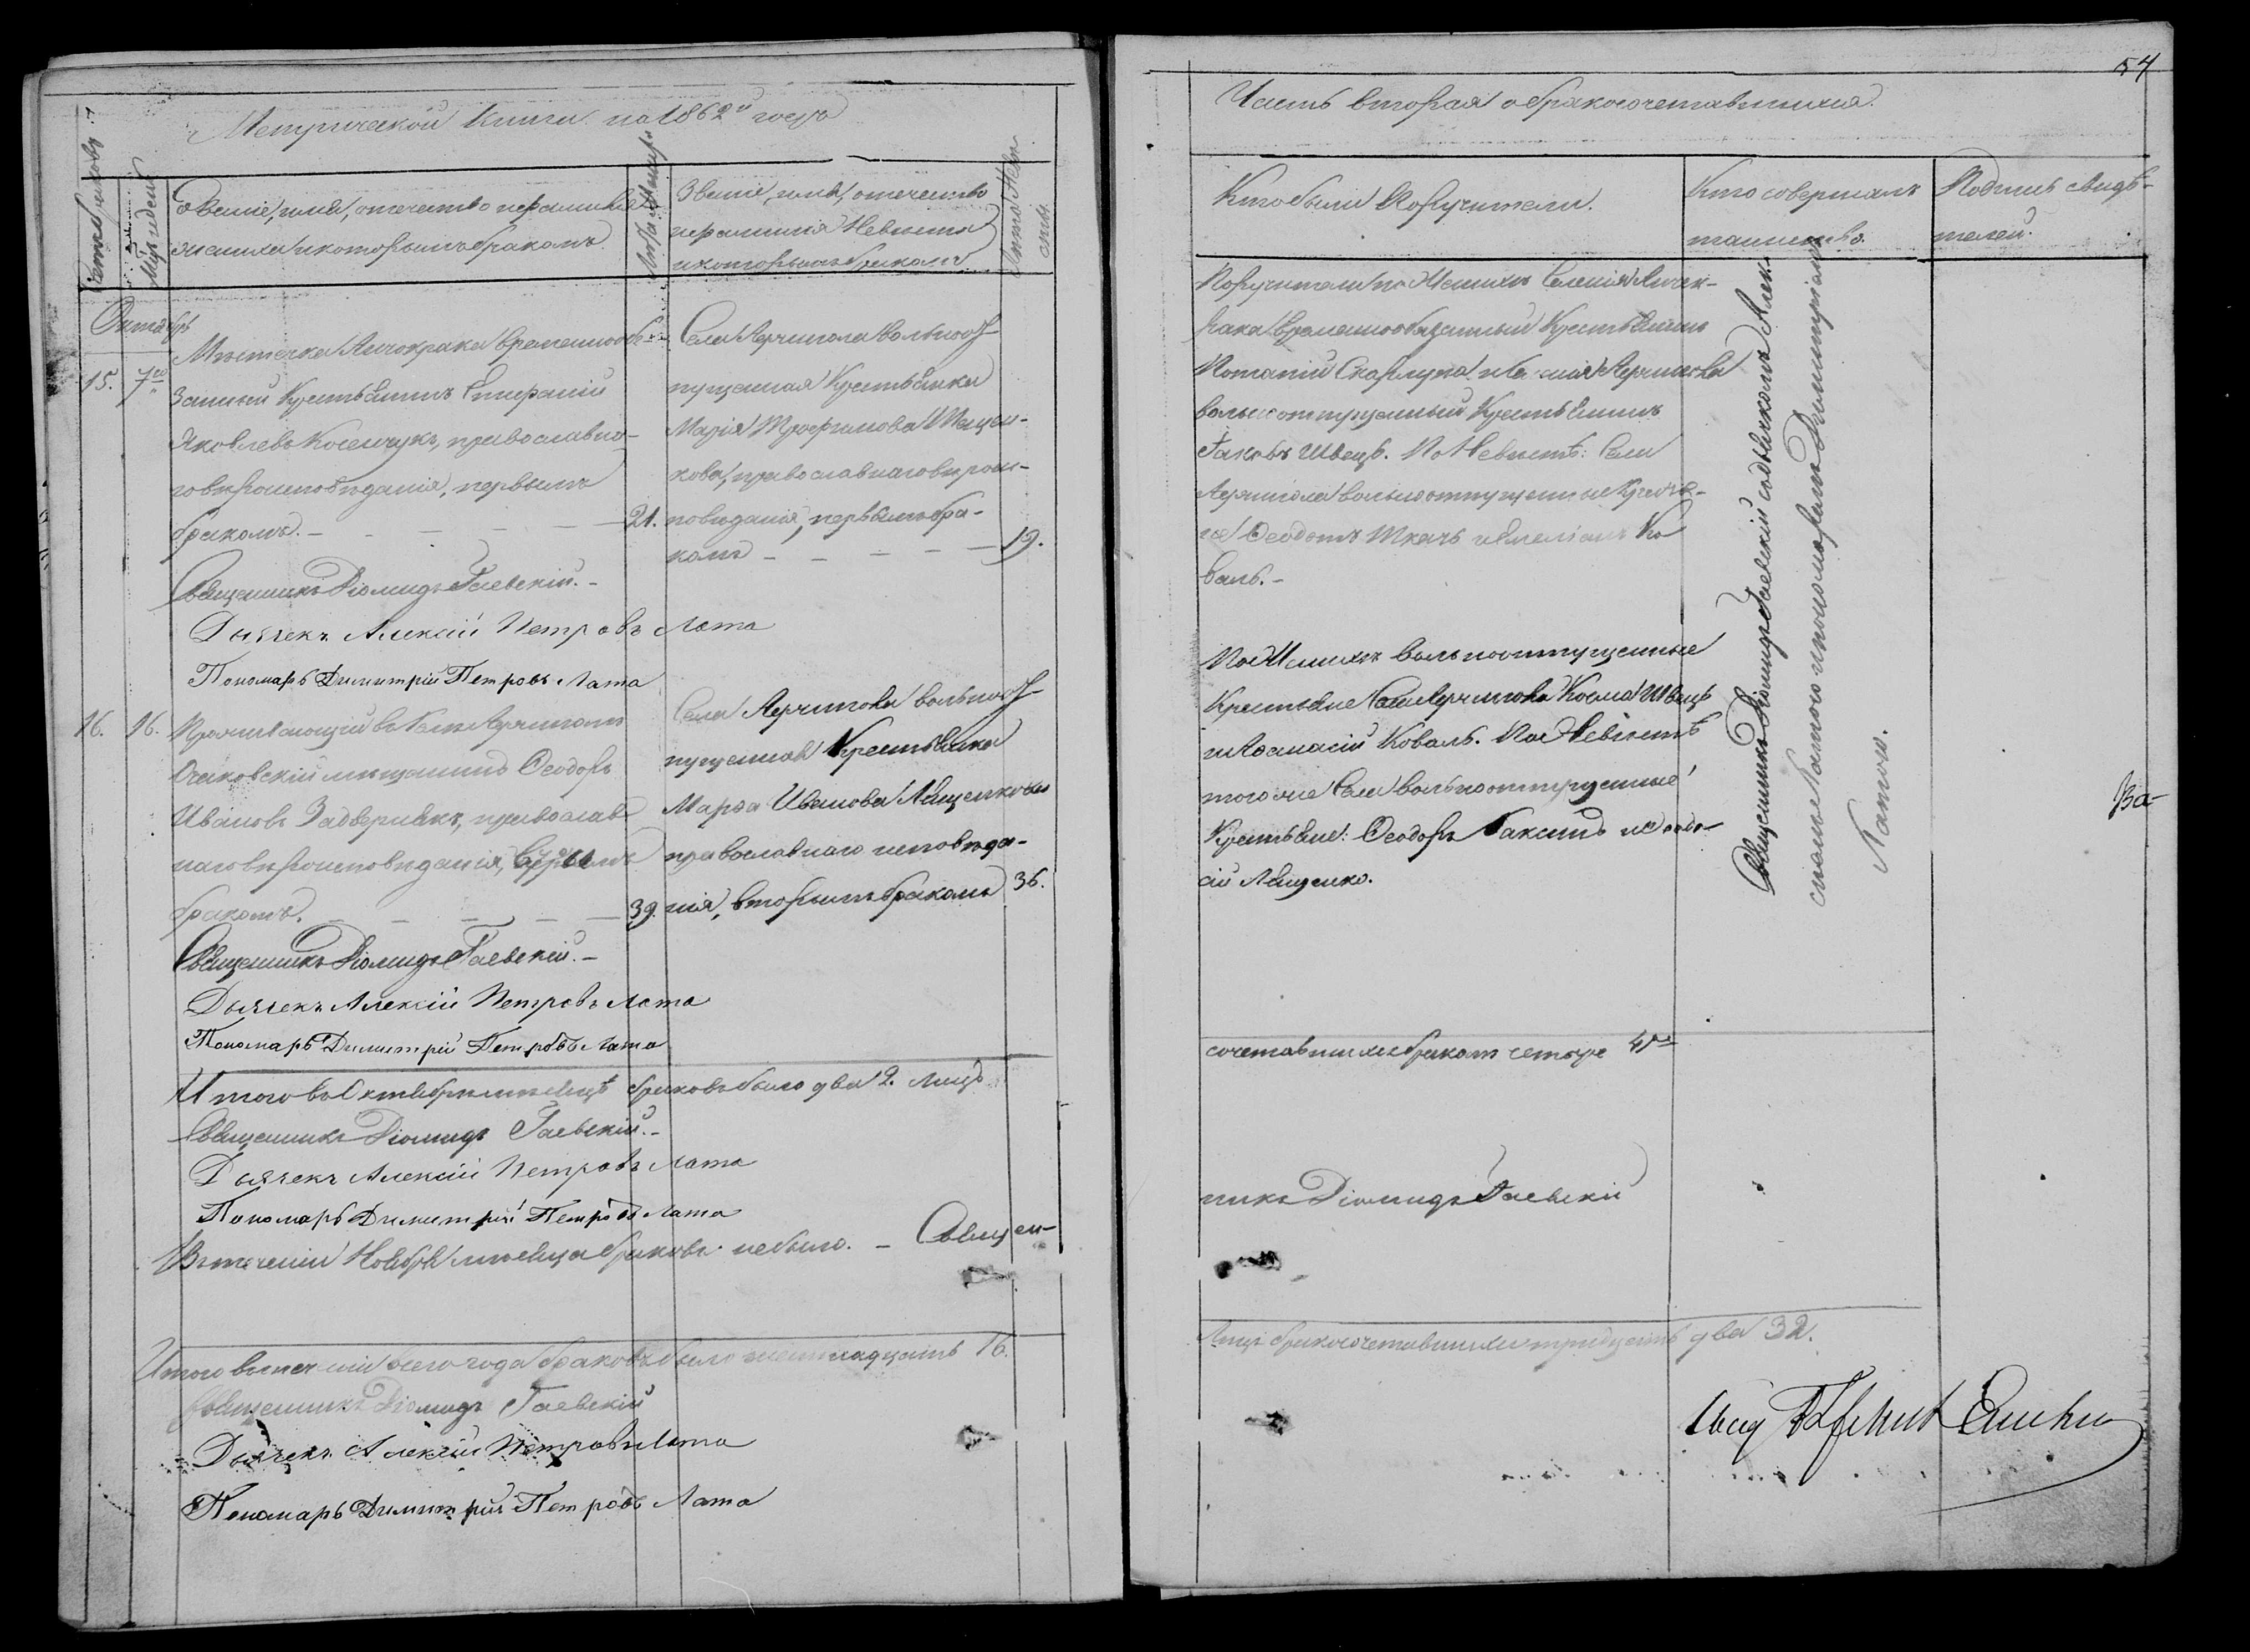 Метрической Книги на 1862й годъ
Счетъ браковъ
Мѣсяцъ и день
Званіе, имя, отечество и фамилія
жениха и которымъ бракомъ
Лѣта Жениха
Званіе, имя, отечество
и фамилія Невѣсты
и которымъ бракомъ
Лѣта Невѣ-
сты.
Октябрь
15. 7го
Мѣстечка Анчокрака временнообя-
занный Крестьянинъ
Яковлевъ православна-
го вѣроисповѣданія, первымъ
бракомъ. 21.
Села Аджигола вольноот-
пущенная Крестьянка
Марія Трофимова
православнаго вѣроис-
повѣданія, первымъ бра-
комъ 19.
Священникъ Діомидъ Гаевскій.
Дьячекъ Алексій Петровъ Лата
Пономарь Димитрій Петровъ Лата
16. 16.
Проживающій въ Селѣ Аджиголѣ
Очаковскій мѣщанинъ Ѳеодоръ
Ивановъ православ-
наго вѣроисповѣданія,
бракомъ. 39.
Села Аджигола вольноот-
пущенная Крестьянка
Марѳа Иванова Ляшенкова
православнаго исповѣда-
нія, вторымъ бракомъ 36.
Священникъ Діомидъ Гаевскій.
Дьячекъ Алексій Петровъ Лата
Пономарь Димитрій Петровъ Лата
Итого въ Октябрѣ мѣсяцѣ браковъ было два 2. Лицъ
Священникъ Діомидъ Гаевскій.
Дьячекъ Алексій Петровъ Лата
Пономарь Димитрій Петровъ Лата
Въ теченіи Ноября мѣсяца браковъ не было. Священ-
Итого въ теченіи всего года браковъ было шестнадцать 16.
Священникъ Діомидъ Гаевскій
Дьячекъ Алексій Петровъ Лата
Пономарь Димитрій Петровъ Лата
54
Часть вторая о бракосочетавшихся.
Кто были Поручители.
Кто совершалъ
таинство.
Подпись свидѣ-
телей.
Поручители по Женихѣ: Анчек-
рака временнообязанный Крестьянинъ
Потапій и Аджигола
вольноотпущенный Крестьянинъ
Іаковъ Швецъ. По Невѣстѣ: Села
Аджигола вольноотпущенные Крестья-
не Ѳеодотъ Ткачъ и Емеліанъ Ко
валь.
По Женихѣ вольноотпущенные
Крестьяне Села Аджигола Косма Швецъ
и Аѳанасій Коваль. По Невѣстѣ
того же Села вольноотпущенные
Крестьяне: Ѳеодоръ и Ѳеодо-
сій Ляшенко.
Священникъ Діомидъ Гаевскій съ дьячкомъ Алек-
сіемъ Латою и пономаремъ Димитріемъ
Латою.
Ва-
сочетавшихся бракомъ четыре 4ре
никъ Діомидъ Гаевскій
Лицъ бракосочетавшихся тридцать два 32.